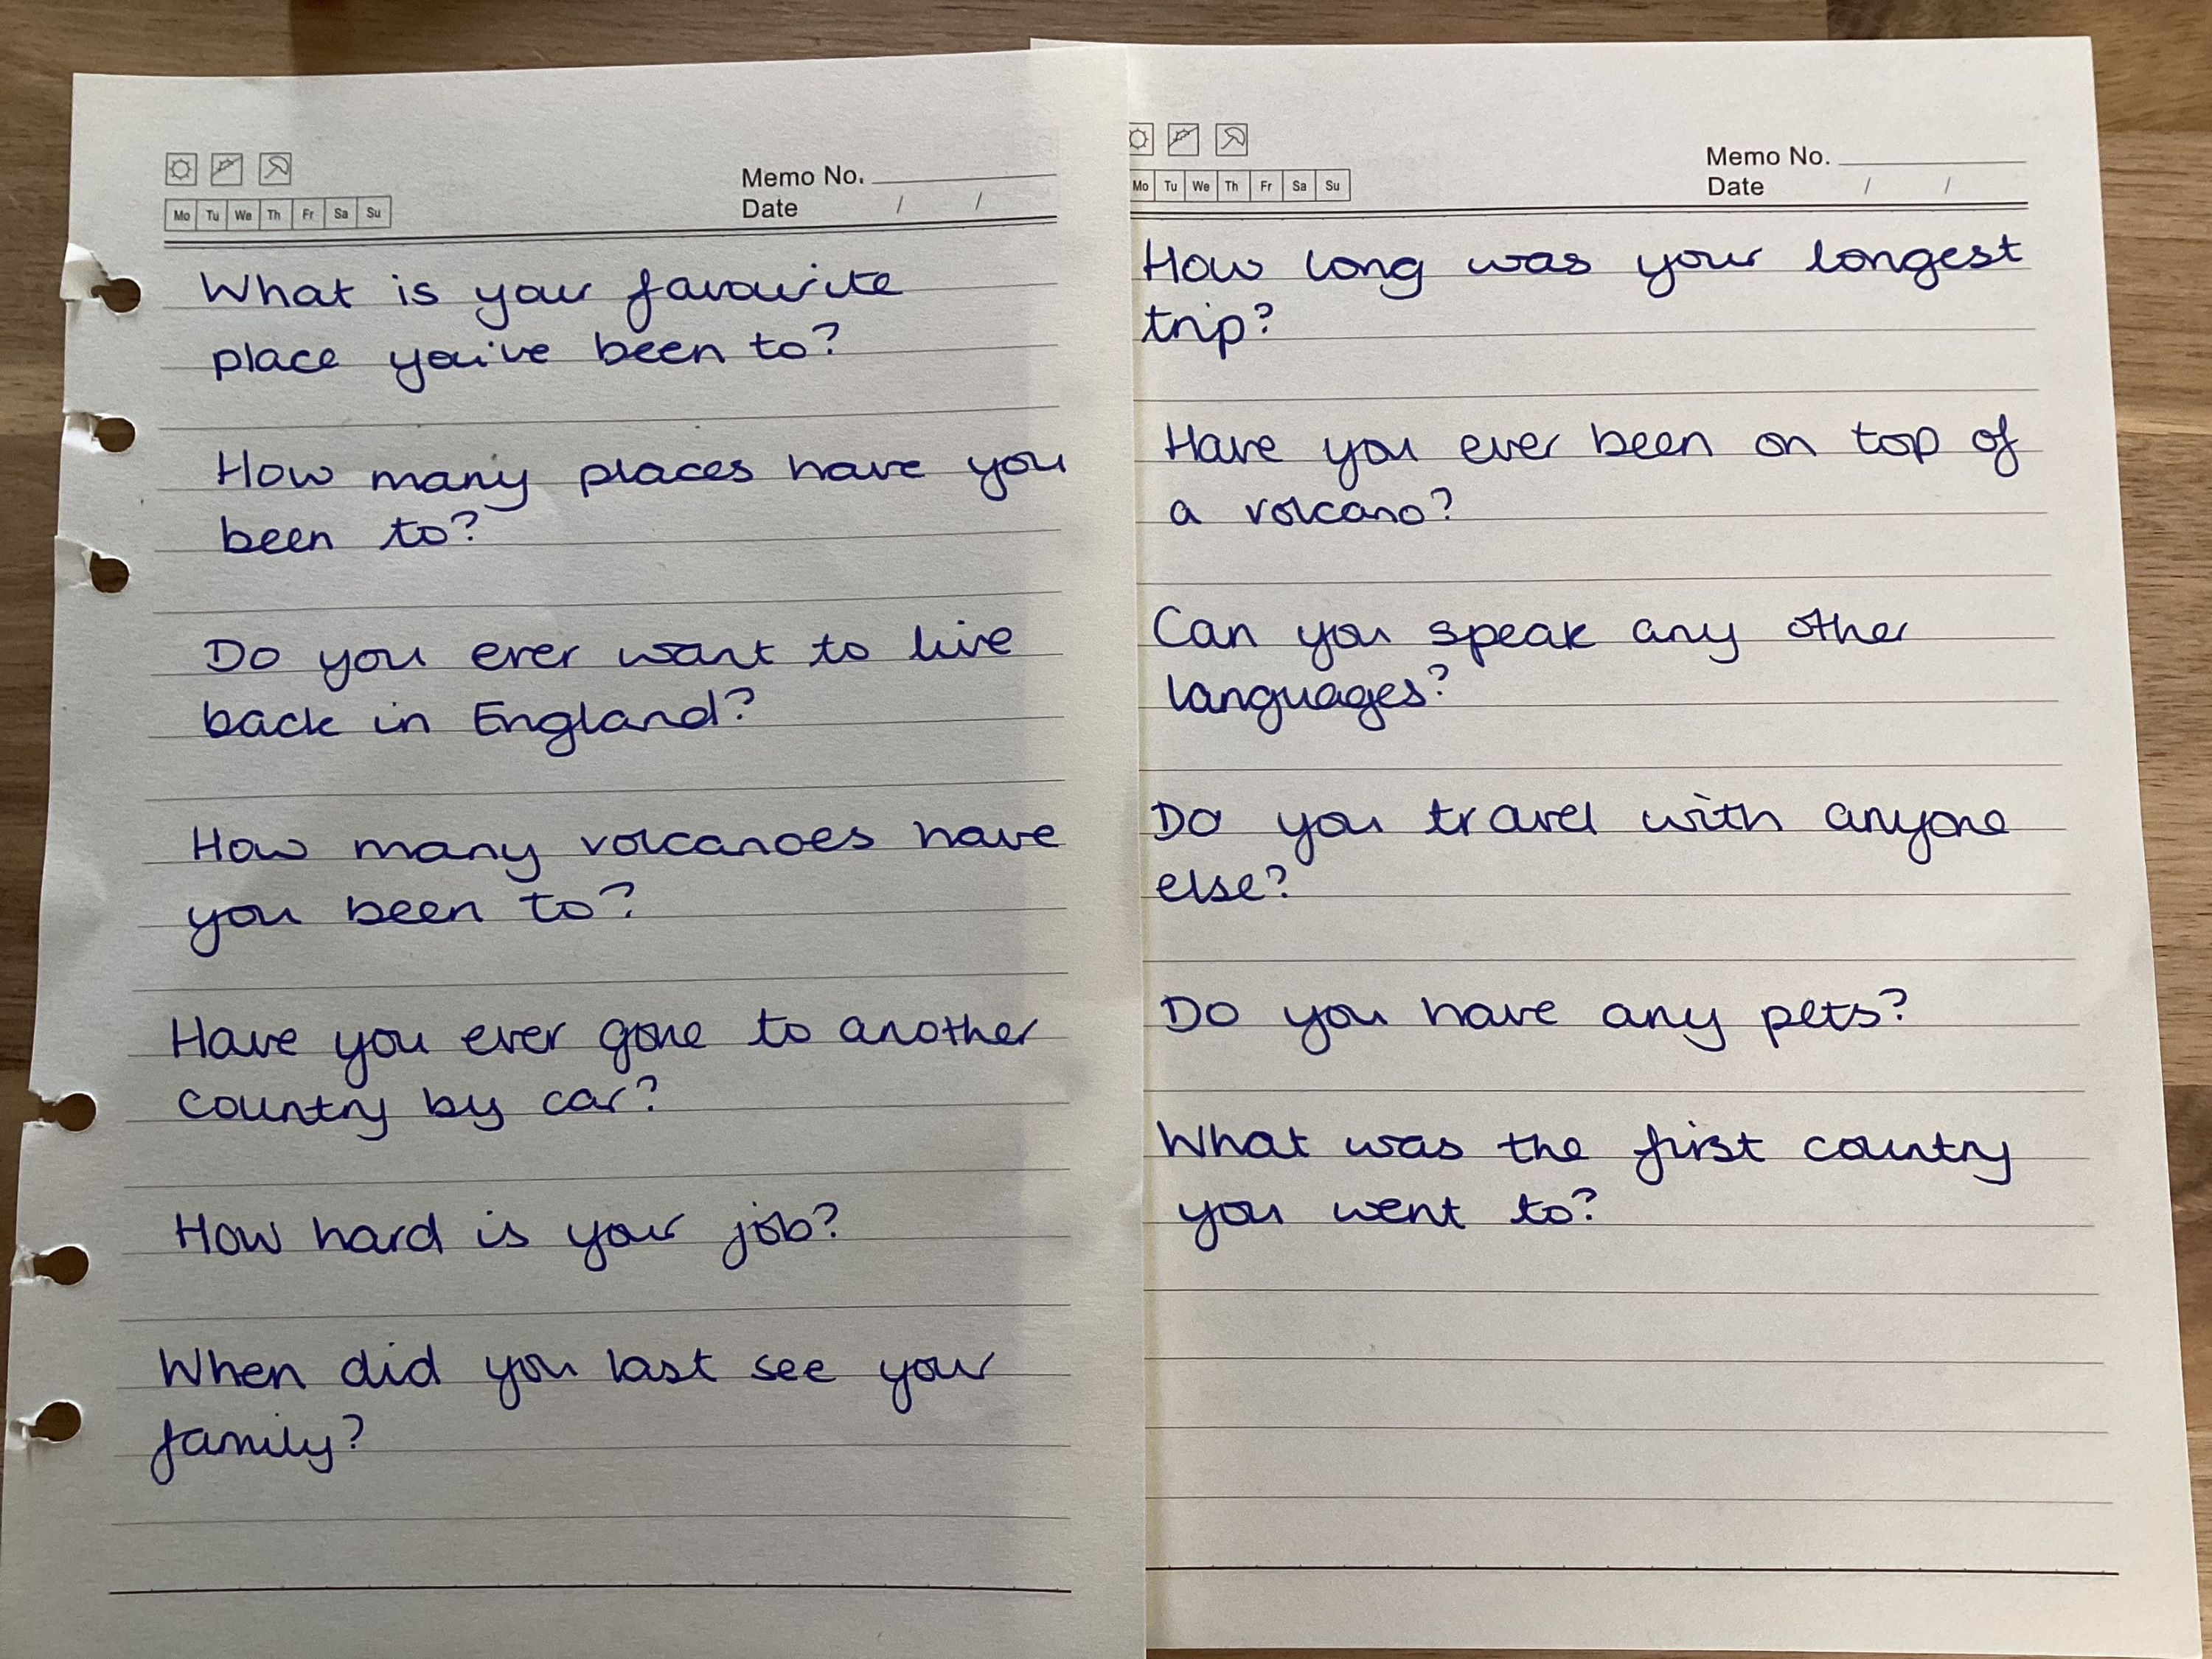 Memo No.
Date / /
Mo Tu We Th Fr Sa Su
What is your favourite
place you've been to?
How many places have you
been to?
Do you ever want to live
back in England?
How many volcanoes have
you been to?
Have you ever gone to another
country by car?
How hard is your job?
When did you last see your
family?
Memo No.
Date / /
Mo Tu We Th Fr Sa Su
How long was your longest
trip?
Have you ever been on top of
a volcano?
Can you speak any other
languages?
Do you travel with anyone
else?
Do you have any pets?
What was the first country
you went to?